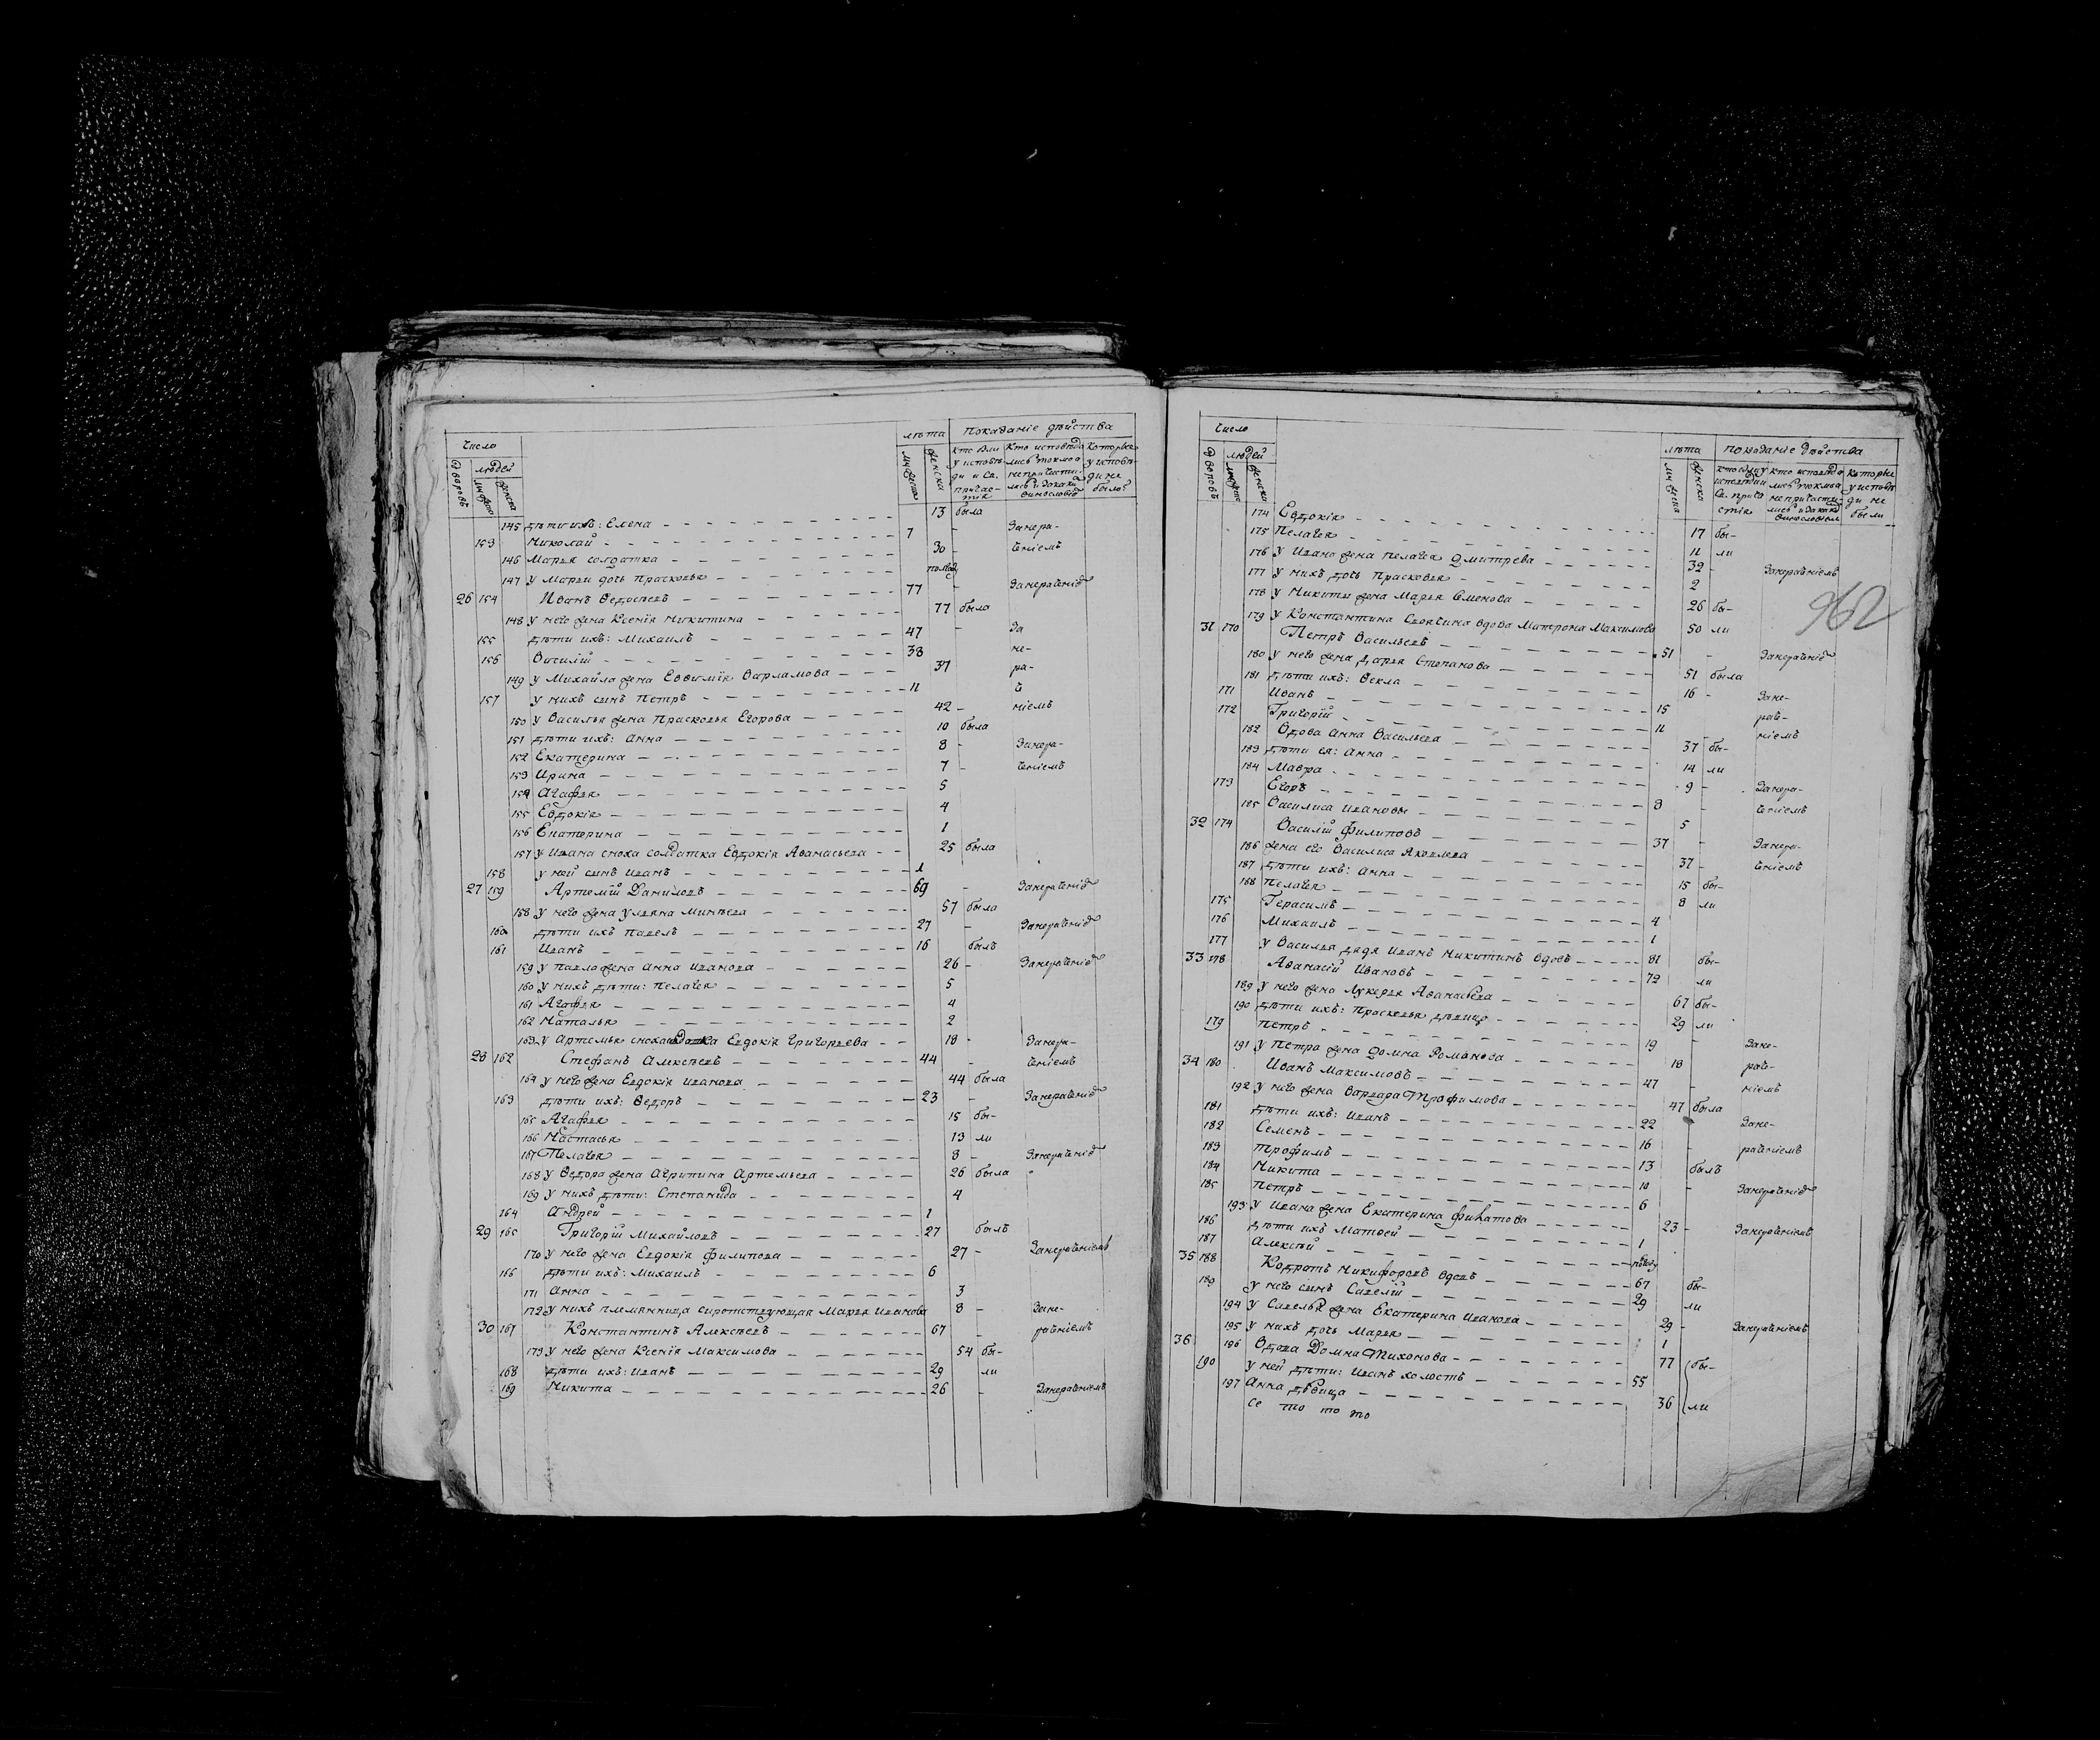 Число
людей
лѣта
Показаніе дѣйства
дворовъ
муж
женска
мужеска
женска
кто были у исповѣди и Св. причастія
Кто исповѣдались токмо а не причастились и за какимъ винословіемъ
Которые у исповѣди не были
145 дѣти ихъ: Елена 13 была
153 Николай 7 - Занера-
146 Марья солдатка 30 - ченіемъ
147 У Марьи дочь Прасковья полгод
26 154 Иванъ Ѳедосѣевъ 77 - Занераченіемъ
148 У него жена Ксенія Никитина 77 была
155 дѣти ихъ: Михаилъ 47 - За
156 Василій 38 не-
149 У Михайла жена Евѳимія Варламова 37 ра-
157 У нихъ сынъ Петръ 11 ч
150 У Василья жена Прасковья Егорова 42 - ніемъ
151 дѣти ихъ: Анна 10 была
152 Екатерина 8 - Занера-
153 Ирина 7 - ченіемъ
154 Агафья 5
155 Евдокія 4
156 Екатерина 1
157 У Ивана сноха солдатка Евдокія Аѳанасьева 25 была
158 У ней сынъ Иванъ 1
27 159 Артемій Даниловъ 69 - Занераченіемъ
158 У него жена Ульяна Минѣева 57 была
160 дѣти ихъ Павелъ 27 - Занераченіемъ
161 Иванъ 16 былъ
159 У Павла жена Анна Иванова 26 - Занераченіемъ
160 У нихъ дѣти: Пелагея 5
161 Агафья 4
162 Наталья 2
163 У Артемья сноха солдатка Евдокія Григорьева 18 - Занера-
28 162 Стефанъ Алексѣевъ 44 - ченіемъ
164 У него жена Евдокія Иванова 44 была
163 дѣти ихъ: Ѳедоръ 23 - Занераченіемъ
165 Агафья 15 бы-
166 Настасья 13 ли
167 Пелагея 8 - Занераченіемъ
168 У Ѳедора жена Агрипина Артемьева 26 была
169 У нихъ дѣти: Степанида 4
164 Андрей 1
29 165 Григорій Михайловъ 27 былъ
170 У него жена Евдокія Филипова 27 - Занераченіемъ
166 дѣти ихъ: Михаилъ 6
171 Анна 3
172 У нихъ племянница сиротствующая Марья Иванова 8 - Зане-
30 167 Константинъ Алексѣевъ 67 - раченіемъ
173 У него жена Ксенія Максимова 54 бы-
168 дѣти ихъ: Иванъ 29 ли
169 Никита 26 - Занераченіемъ
Число
людей
лѣта
показаніе дѣйства
дворовъ
женска
женска
которые у исповѣди не были
174 Евдокія 17 бы-
175 Пелагея 11 ли
176 У Ивана жена Пелагея Дмитрева 32 - Занераченіемъ
177 У нихъ дочь Прасковья 2
178 У Никиты жена Марья Семенова 26 бы-
179 У Константина Своячина вдова Матерона Максимова 50 ли
962
31 170 Петръ Васильевъ 51 - Занераченіемъ
180 У него жена Дарья Степанова 51 была
181 дѣти ихъ: Ѳекла 16 - Зане-
171 Иванъ 15 рач-
172 Григорій 11 - ніемъ
182 Вдова Анна Васильева 37 бы-
183 дѣти ея: Анна 14 ли
184 Мавра 9 - Занера-
173 Егоръ 8 - ченіемъ
185 Василиса Ивановы 5
32 174 Василій Филиповъ 37 - Занера-
186 жена его Василиса Яковлева 37 - ченіемъ
187 дѣти ихъ: Анна 15 бы-
188 Пелагея 8 ли
175 Герасимъ 4
176 Михаилъ 1
177 У Василья дядя Иванъ Никитинъ вдовъ 81 бы-
33 178 Аѳанасій Ивановъ 72 ли
189 У него жена Лукерья Аѳанасьева 67 бы-
190 дѣти ихъ: Прасковья дѣвица 29 ли
179 Петръ 19 - Зане-
191 У Петра жена Домна Романова 18 рач-
34 180 Иванъ Максимовъ 47 - ніемъ
192 У него жена Варвара Трофимова 47 была
181 дѣти ихъ: Иванъ 22 - Зане-
182 Семенъ 16 - раченіемъ
183 Трофимъ 13 былъ
184 Никита 10 - Занераченіемъ
185 Петръ 6
193 У Ивана жена Екатерина Филатова 23 - Занераченіемъ
186 дѣти ихъ Матѳей 1
187 Алексѣй полгоду
35 188 Кодратъ Никифоровъ вдовъ 67 бы-
189 У него сынъ Савелій 29 ли
194 У Савелья жена Екатерина Иванова 29 - Занераченіемъ
195 У нихъ дочь Марья 1
36 196 Вдова Домна Тихонова 77 бы-
190 У ней дѣти: Иванъ холостъ 55
197 Анна дѣвица 36 ли